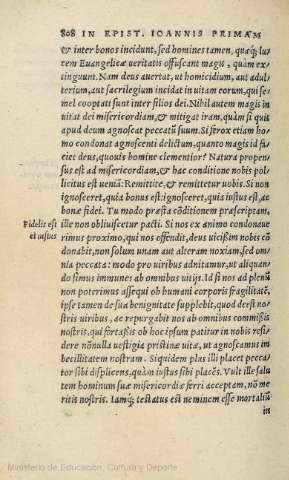 808 IN EPIST. IOANNIS PRIMAM
& inter bonos incidunt, sed homines tamen, quæq; lu-
cem Euangelicæ ueritatis offuscant magis, quàm ex-
tinguunt. Nam deus auertat, ut homicidium, aut adul-
terium, aut sacrilegium incidat in uitam eorum, qui se-
mel cooptati sunt inter filios dei. Nihil autem magis in
uitat dei misericordiam, & mitigat iram, quàm si quis
apud deum agnoscat peccatũ suum. Si ferox etiam ho-
mo condonat agnoscenti delictum, quanto magis id fa-
ciet deus, quouis homine clementior? Natura propen-
sus est ad misericordiam, & hac conditione nobis pol-
licitus est ueniã: Remittite, & remittetur uobis. Si non
ignosceret, quia bonus est: ignosceret, quia iustus est, ac
bonæ fidei. Tu modo præsta cõditionem præscriptam,
Fidelis est
et iustus
ille non obliuiscetur pacti. Si nos ex animo condonaue
rimus proximo, qui nos offendit, deus uicissim nobis cõ
donabit, non solum unam aut alteram noxiam, sed om
nia peccata: modo pro uiribus adnitamur, ut aliquan
do simus immunes ab omnibus uitijs. Id si nos ad plenũ
non poterimus assequi ob humani corporis fragilitatẽ,
ipse tamen de sua benignitate supplebit, quod deest no-
stris uiribus, ac repurgabit nos ab omnibus commissis
nostris, qui fortaßis ob hoc ipsum patitur in nobis resi-
dere nõnulla uestigia pristinæ uitæ, ut agnoscamus im
becillitatem nostram. Siquidem plus illi placet pecca-
tor sibi displicens, quàm iustus sibi placẽs. Vult ille salu
tem hominum suæ misericordiæ ferri acceptam, nõ me
ritis nostris. Iamq; testatus est neminem esse mortaliũ
in
Ministerio de Educación, Cultura y Deporte